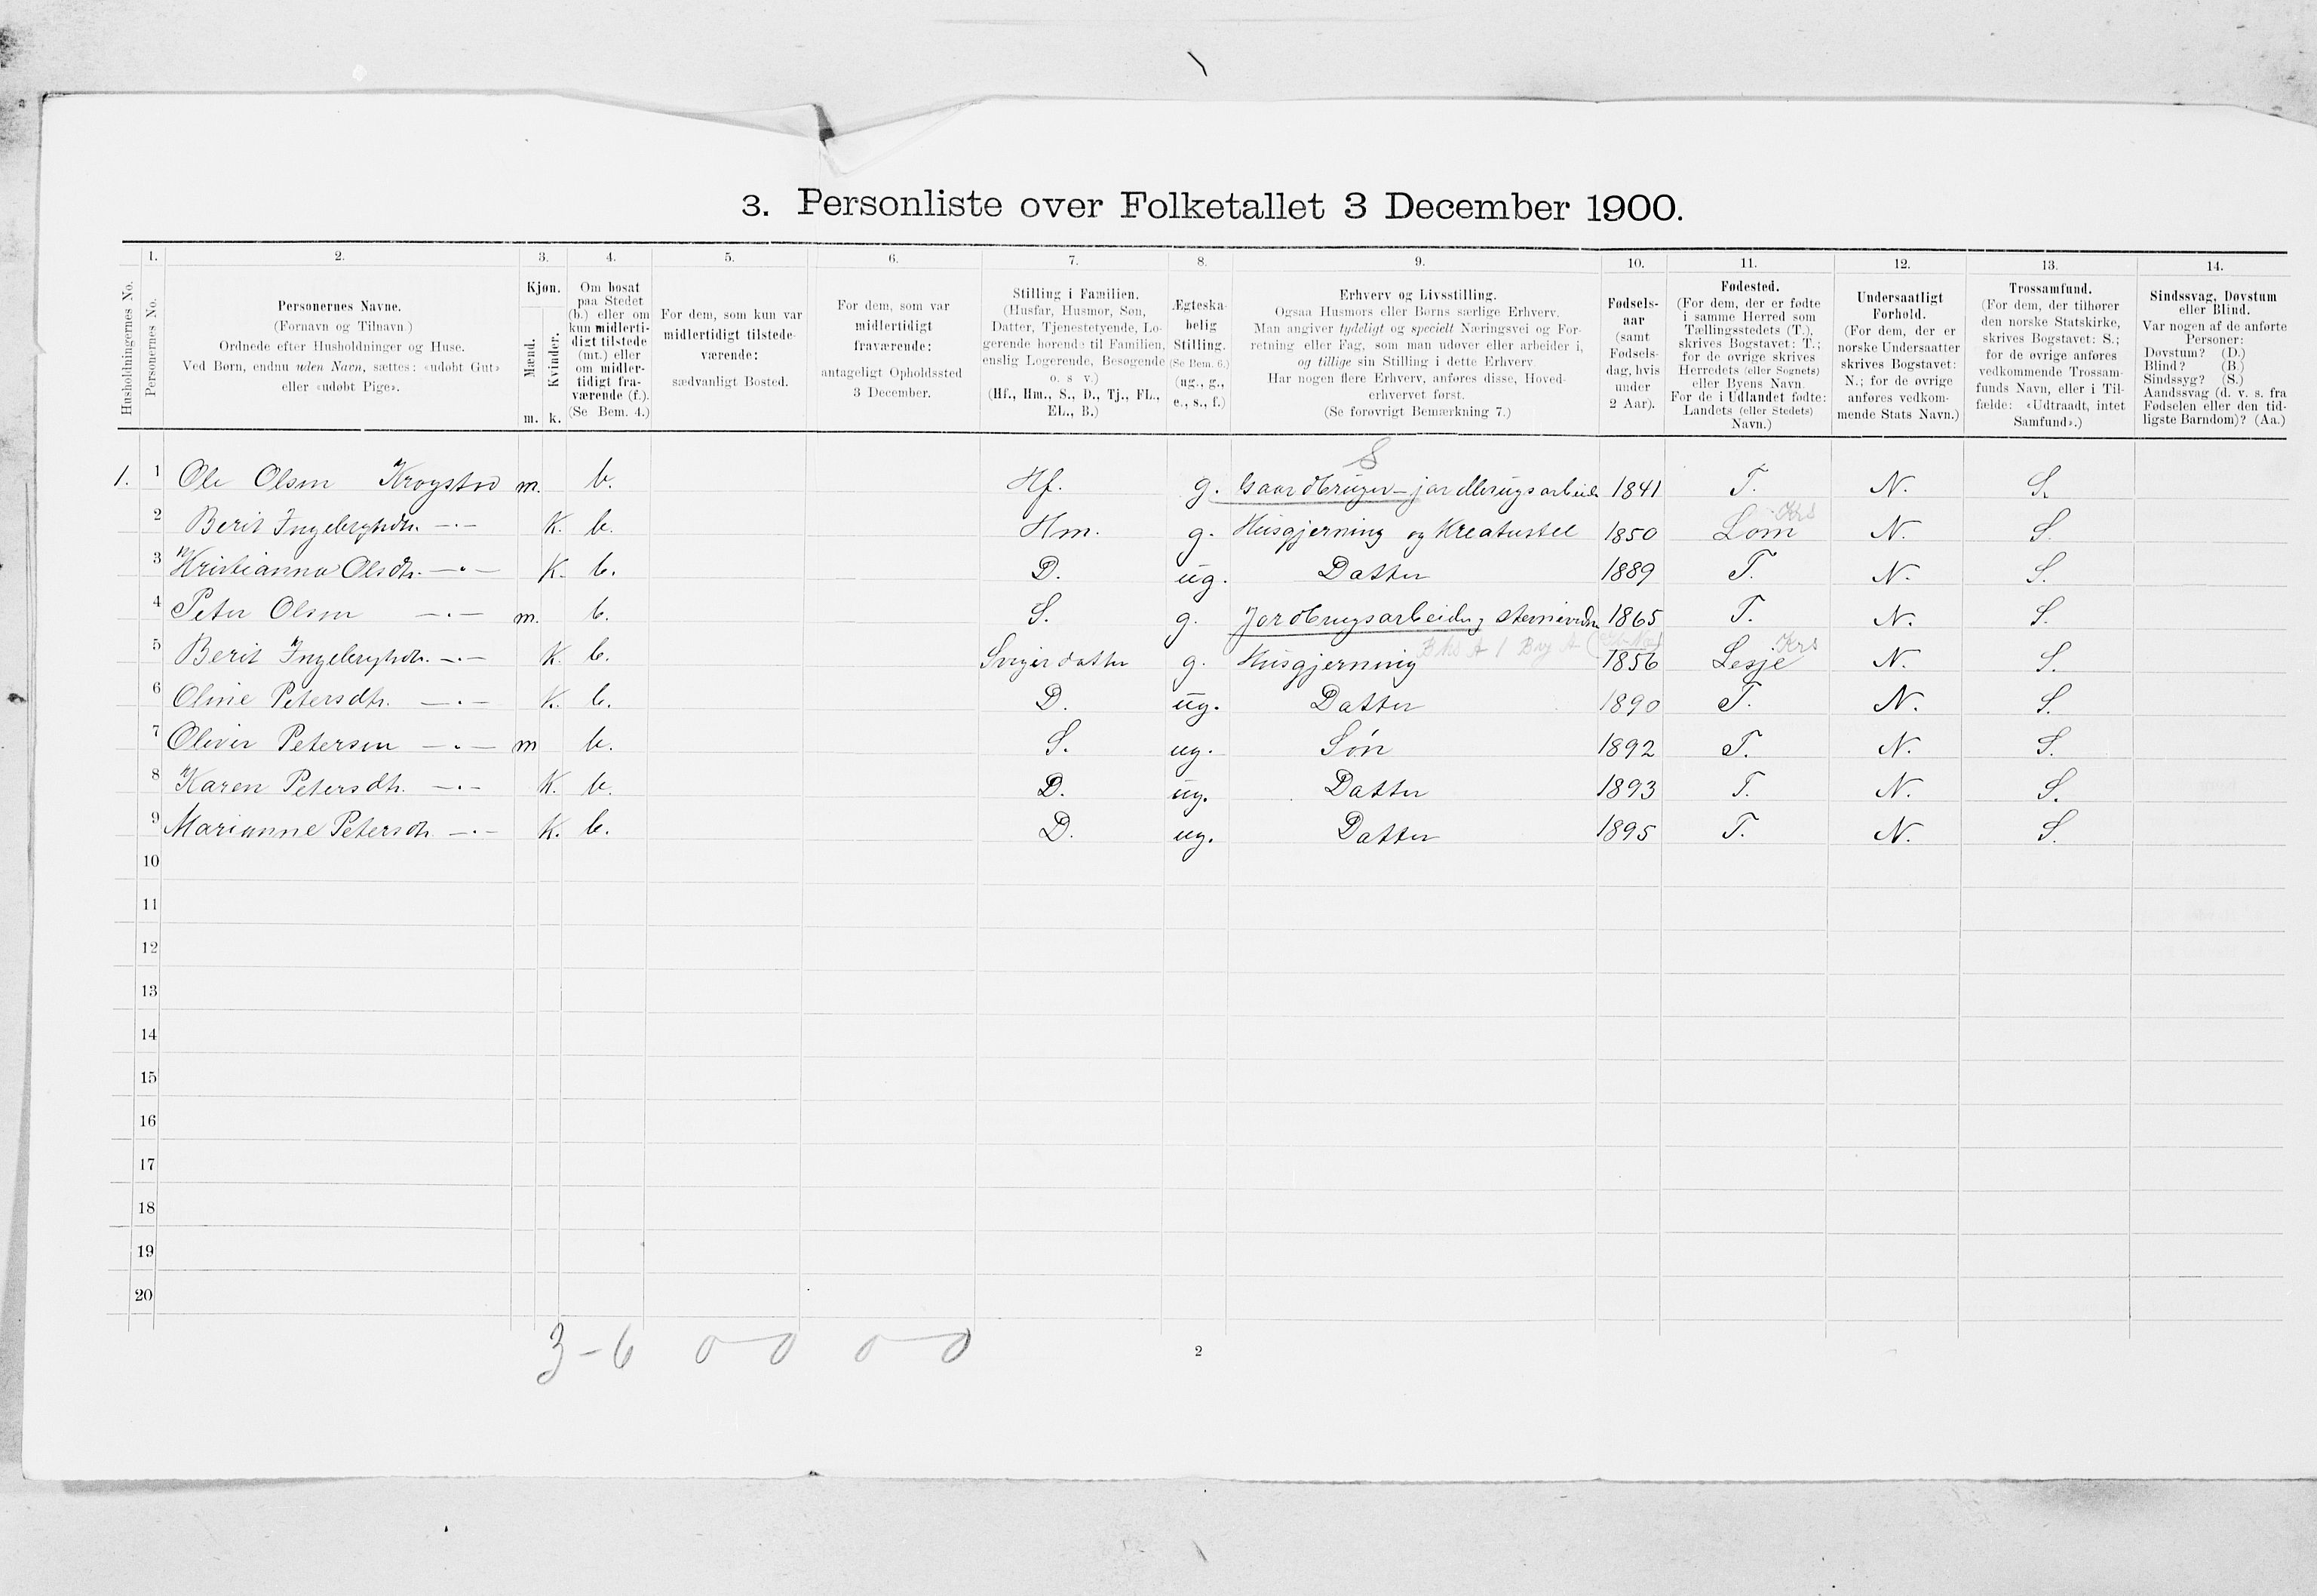 3. Personliste over Folketallet 3 December 1900.
1. 2. 3. 4. 5. 6. 7. 8. 9. 10. 11. 12. 13. 14.
Husholdningernes No.
Personernes No.
Personernes Navne.
(Fornavn og Tilnavn.)
Ordnede efter Husholdninger og Huse.
Ved Børn, endnu uden Navn, sættes: «udøbt Gut»
eller «udøbt Pige».
Kjøn.
Mænd.
Kvinder.
m. k.
Om bosat
paa Stedet
(b.) eller om
kun midlerti-
digt tilstede
(mt.) eller
om midler-
tidigt fra-
værende (f.).
(Se Bem. 4.)
For dem, som kun var
midlertidigt tilstede-
værende:
sædvanligt Bosted.
For dem, som var
midlertidigt
fraværende:
antageligt Opholdssted
3 December.
Stilling i Familien.
(Husfar, Husmor, Søn,
Datter, Tjenestetyende, Lo-
gerende hørende til Familien,
enslig Logerende, Besøgende
o. s. v.)
(Hf., Hm., S., D., Tj., FL.,
EL., B.)
Ægteska-
belig
Stilling.
(Se Bem. 6.)
(ug., g.,
e., s., f.)
Erhverv og Livsstilling.
Ogsaa Husmors eller Børns særlige Erhverv.
Man angiver tydeligt og specielt Næringsvei og For-
retning eller Fag, som man udøver eller arbeider i,
og tillige sin Stilling i dette Erhverv.
Har nogen flere Erhverv, anføres disse, Hoved-
erhvervet først.
(Se forøvrigt Bemærkning 7.)
Fødsels-
aar
(samt
Fødsels-
dag, hvis
under
2 Aar).
Fødested.
(For dem, der er fødte
i samme Herred som
Tællingsstedets (T.),
skrives Bogstavet: T.;
for de øvrige skrives
Herredets (eller Sognets)
eller Byens Navn.
For de i Udlandet fødte:
Landets (eller Stedets)
Navn.)
Undersaatligt
Forhold.
(For dem, der er
norske Undersaatter
skrives Bogstavet:
N.; for de øvrige
anføres vedkom-
mende Stats Navn.)
Trossamfund.
(For dem, der tilhører
den norske Statskirke,
skrives Bogstavet: S.;
for de øvrige anføres
vedkommende Trossam-
funds Navn, eller i Til-
fælde: «Udtraadt, intet
Samfund».)
Sindssvag, Døvstum
eller Blind.
Var nogen af de anførte
Personer:
Døvstum? (D.)
Blind? (B.)
Sindssyg? (S.)
Aandssvag (d. v. s. fra
Fødselen eller den tid-
ligste Barndom)? (Aa.)
S
1. 1 Ole Olsen Krogstad m. b. Hf. g. Gaardbruger - jordbrugsarbeide 1841 T. N. S.
2 Berit Ingebrigtsdtr. -"- K. b. Hm. g. Husgjerning og Kreaturstel 1850 Lom Krs N. S.
3 Kristianna Olsdtr. -"- K. b. D. ug. Datter 1889 T. N. S.
4 Peter Olsen -"- m. b. S. g. Jordbrugsarbeide 1865 T. N. S.
5 Berit Ingebrigtsdtr. -"- K. b. Svigerdatter g. Husgjerning 1856 Lesje Krs N. S.
6 Oline Petersdtr. -"- K. b. D. ug. Datter 1890 T. N. S.
7 Oliver Petersen -"- m b. S. ug. Søn 1892 T. N. S.
8 Karen Petersdtr. -"- K. b. D. ug. Datter 1893 T. N. S.
9 Marianne Petersdtr. -"- K. b. D. ug. Datter 1895 T. N. S.
10
11
12
13
14
15
16
17
18
19
20
3-6 0-0 0-0
2